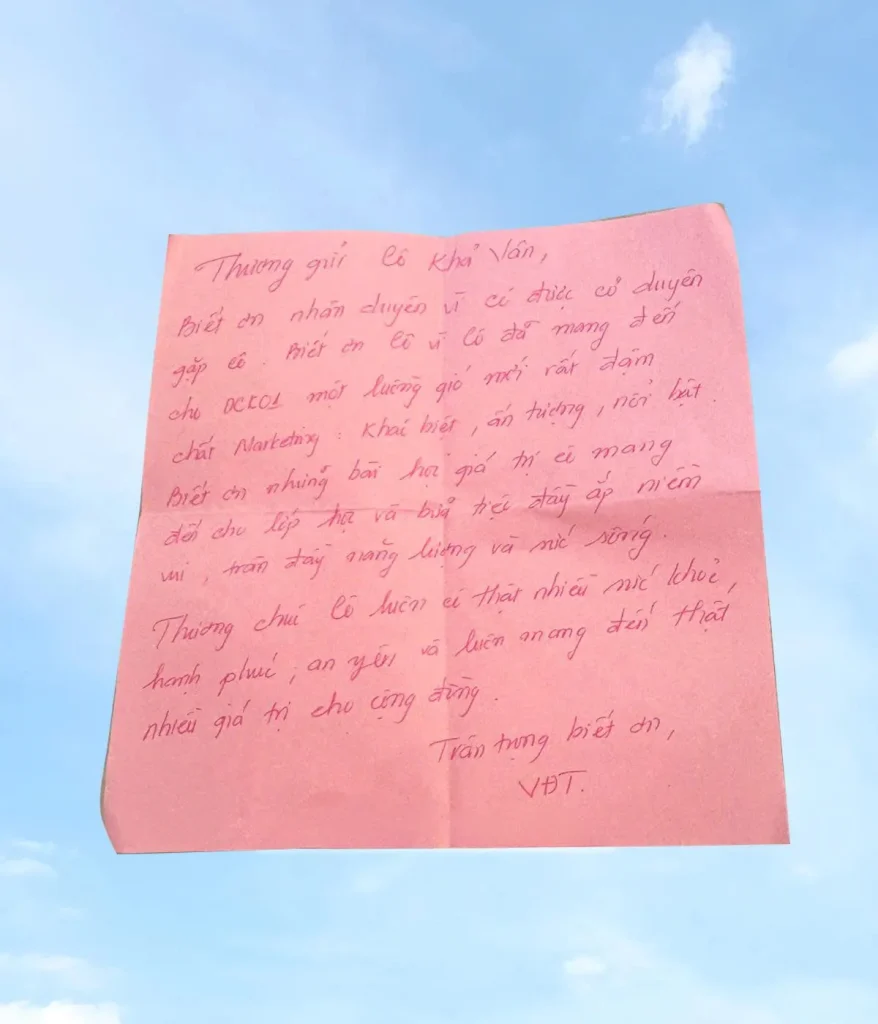 Thương gửi Cô Khả Vân,
Biết ơn nhân duyên vì có được cơ duyên
gặp cô. Biết ơn Cô vì Cô đã mang đến
cho DCK01 một luồng gió mới rất đậm
chất Marketing: Khác biệt, ấn tượng, nổi bật.
Biết ơn những bài học giá trị cô mang
đến cho lớp học và buổi tiệc đầy ắp niềm
vui, tràn đầy năng lượng và sức sống.
Thương chúc Cô luôn có thật nhiều sức khoẻ,
hạnh phúc, an yên và luôn mang đến thật
nhiều giá trị cho cộng đồng.
Trân trọng biết ơn,
VĐT.